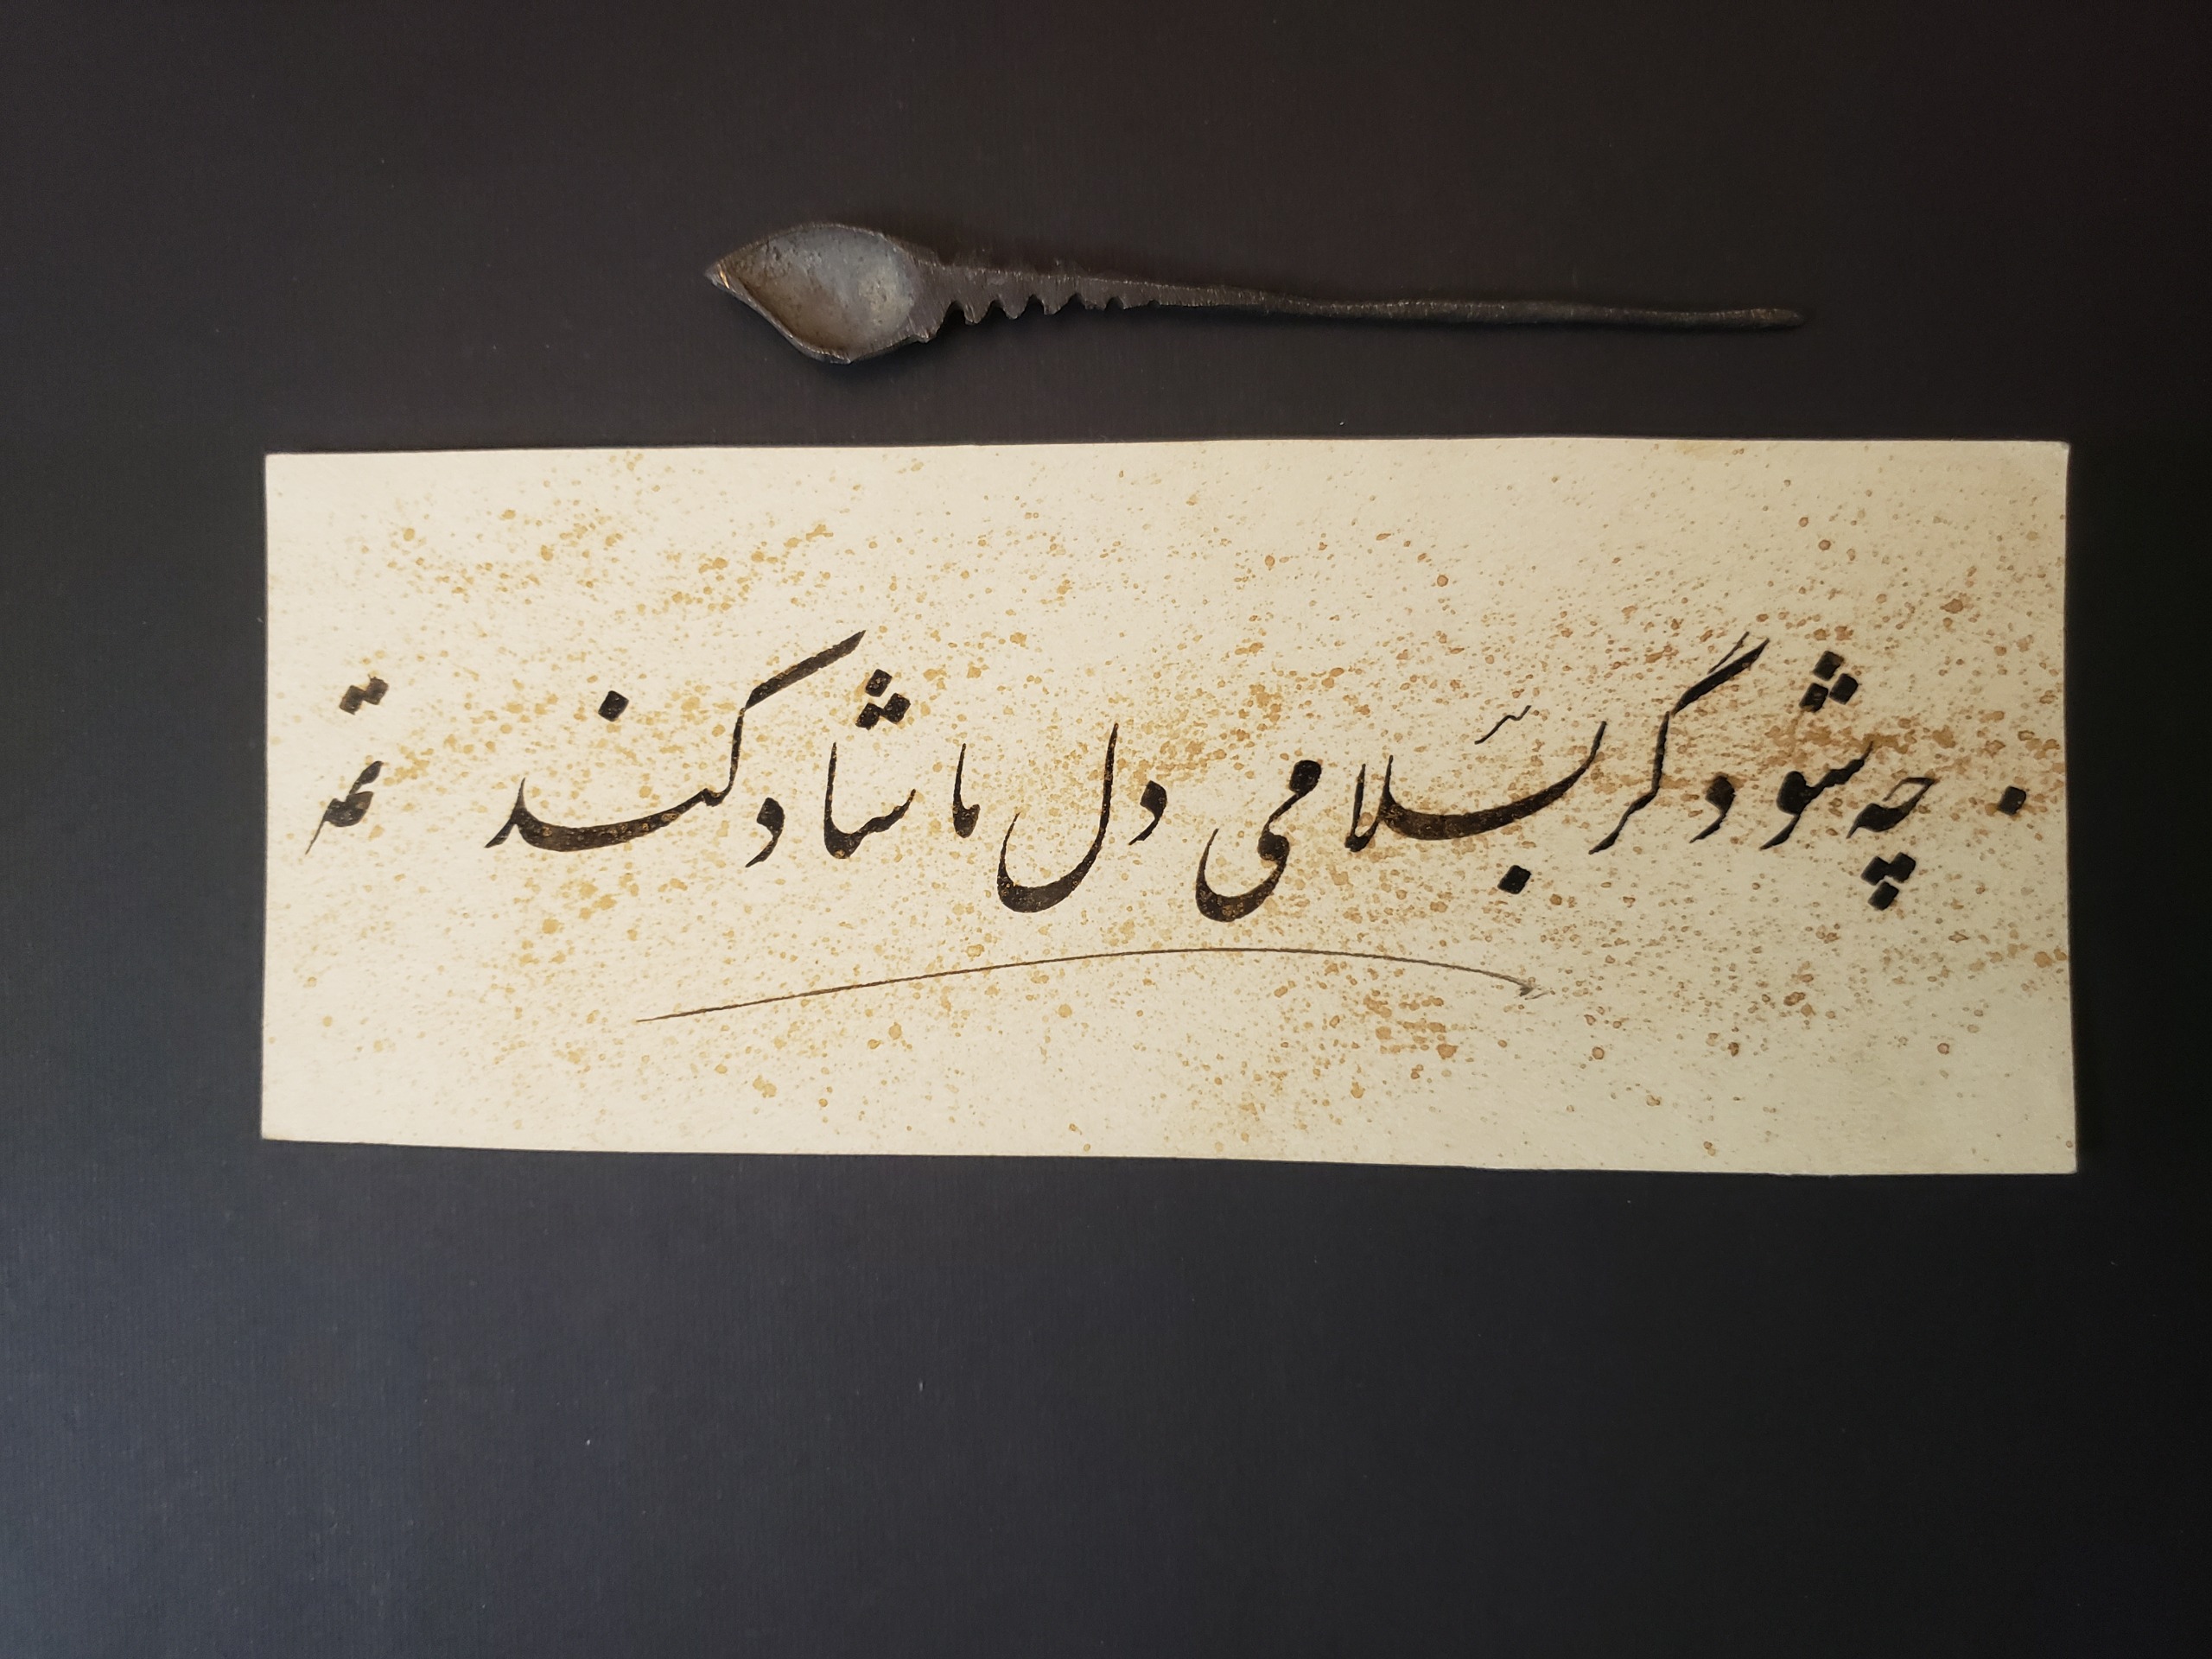 چه شود گر بسلامی دل ما شاد کند